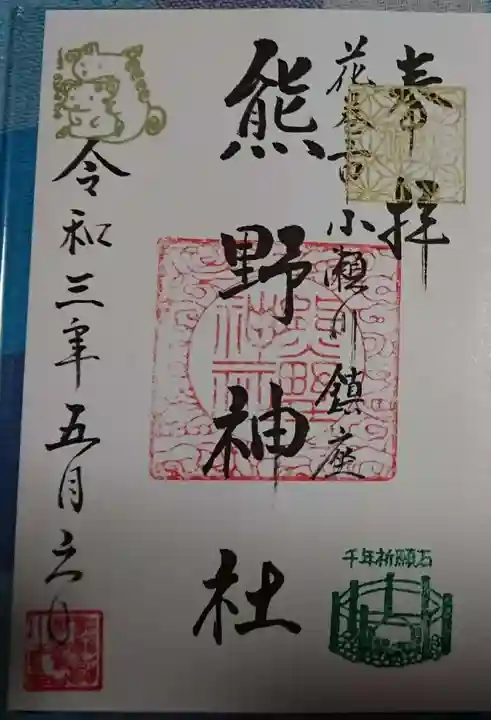 奉拝
花巻市小瀬川鎮座
熊野神社
令和三年五月六日
熊野
神社
千年祈願石